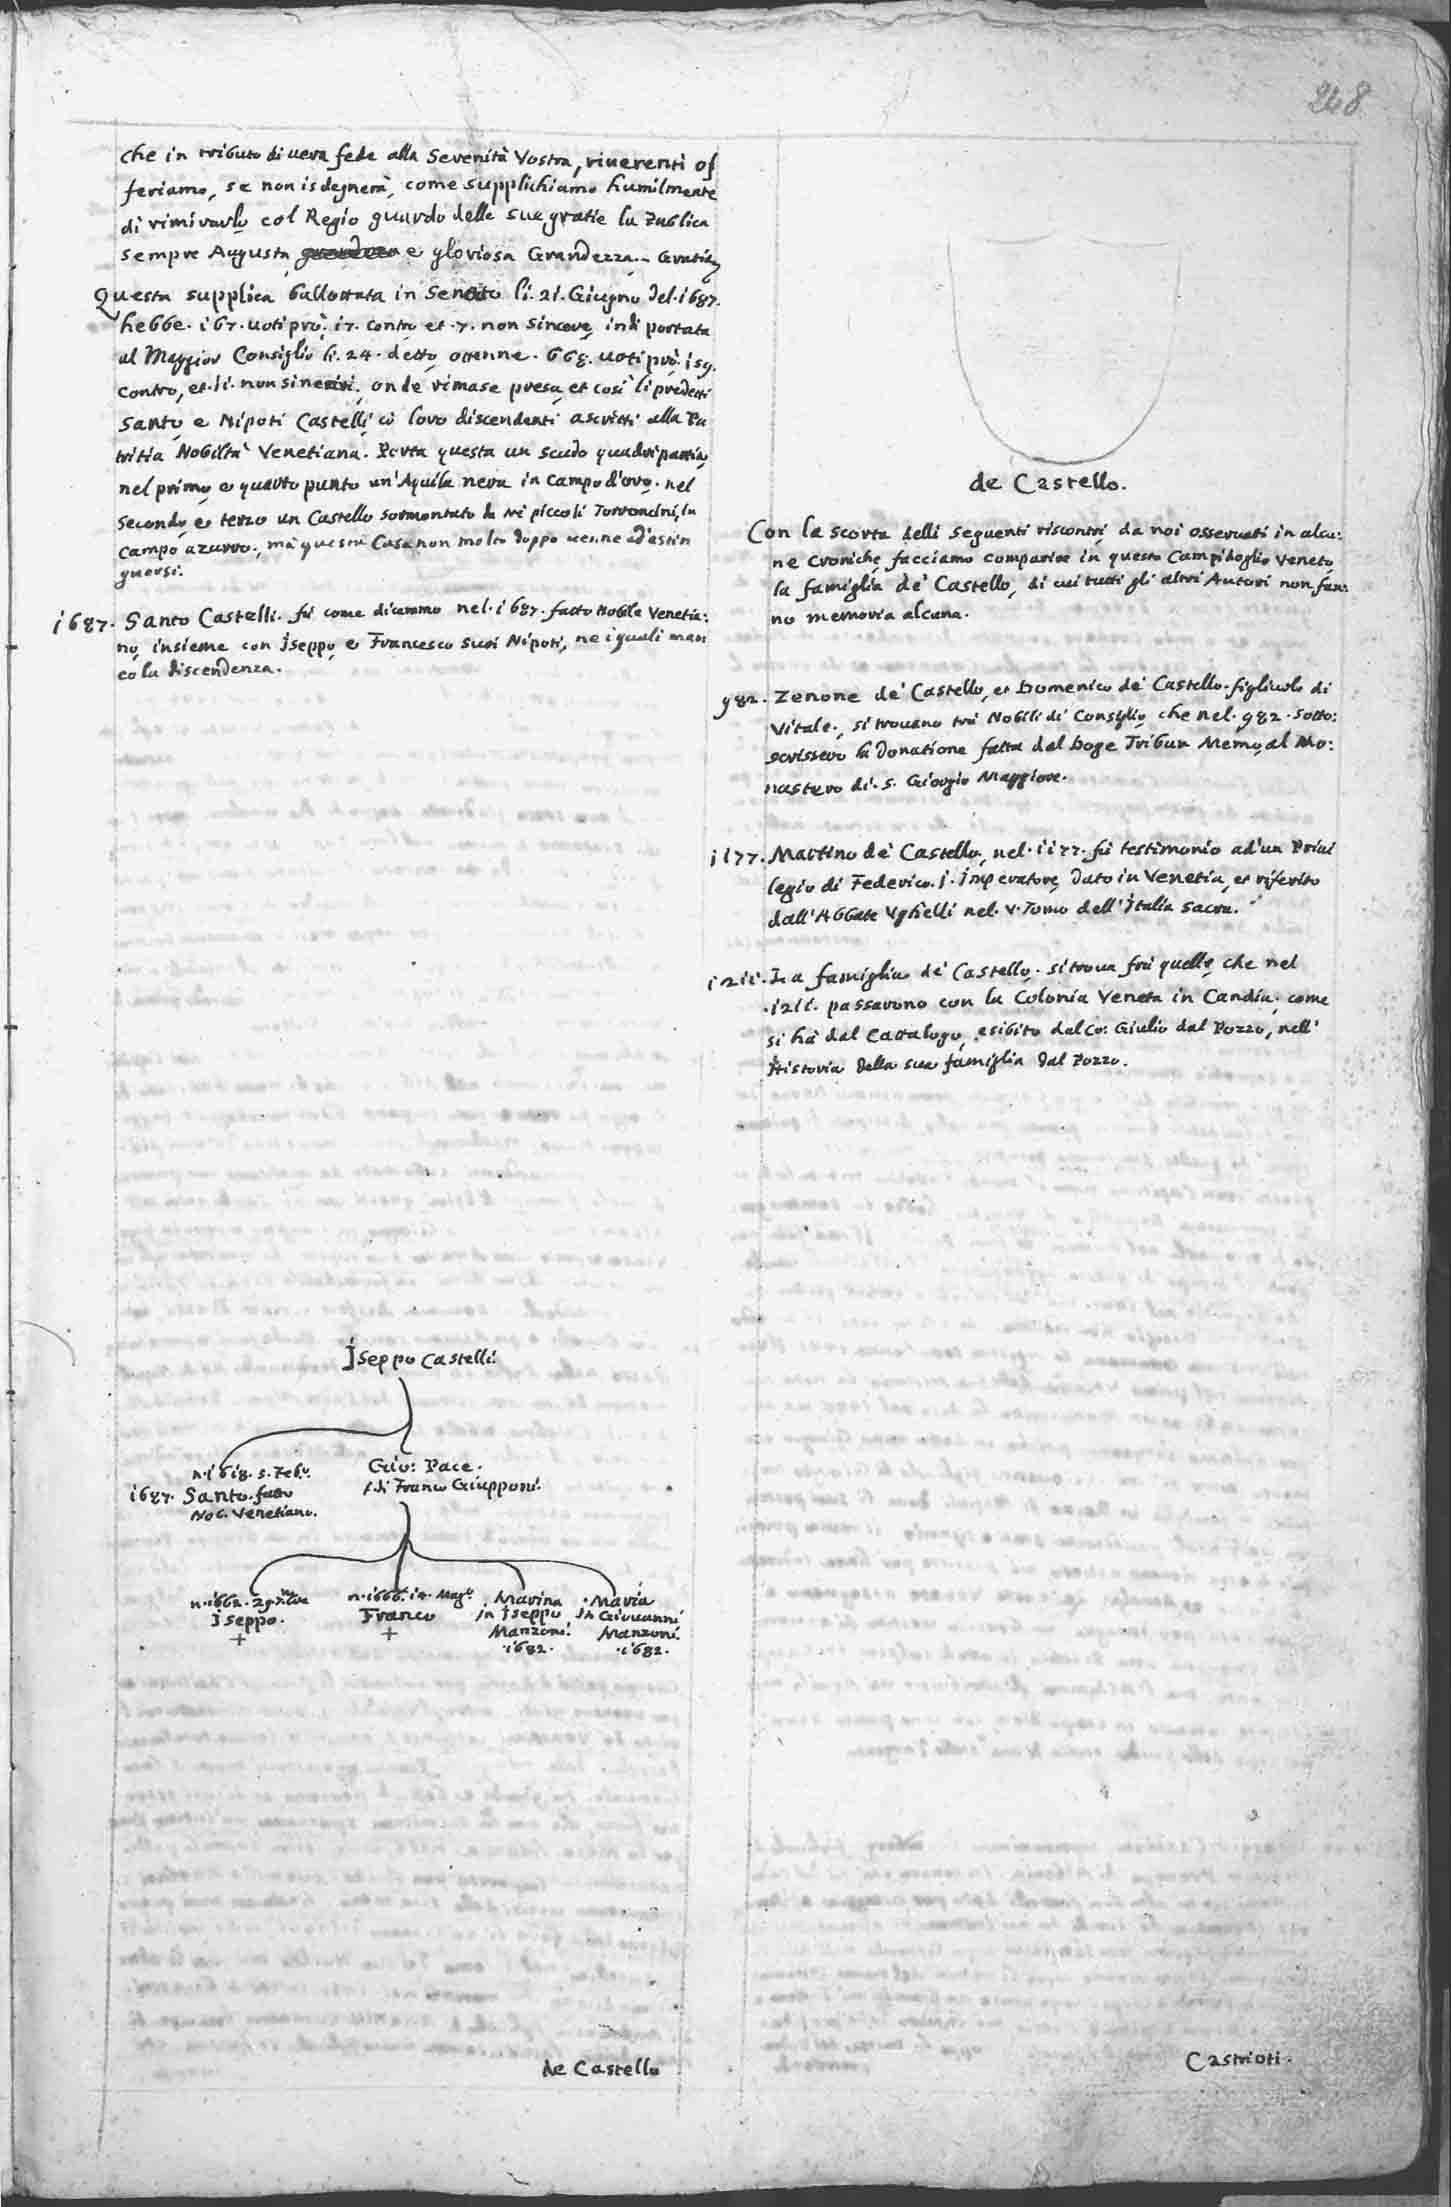 248
che in tributo di uera fede alla Serenità Vostra, riuerenti of
feriamo, se non isdegnerà, come supplichiamo humilmente
di rimirarlo col Regio guardo delle sue gratie la Publica
sempre Augusta e gloriosa Grandezza. Gratie
Questa supplica ballottata in Senato li. 21. Giugno del. 1687.
hebbe. 167. uoti prò. 17. contro et. 7. non sincere, indi portata
al Maggior Consiglio li. 24. detto, ottenne. 668. uoti prò. 159.
contro, et. 11. non sinceri, onde rimase presa, et così li predetti
Santo, e Nipoti Castelli, cò loro discendenti ascritti alla Pa
tritia Nobiltà Venetiana. Porta questa un scudo quadripartito,
nel primo, e quarto punto un'Aquila nera in campo d'oro. nel
secondo, e terzo un Castello sormontato da tre piccoli Torroncini, in
campo azurro., mà questa Casa non molto doppo uenne ad'estin
guersi.
1687. Santo Castelli. fù come dicemmo nel. 1687. fatto Nobile Venetia:
no, insieme con Iseppo, e Francesco suoi Nipoti, ne i quali man
cò la discendenza.
Iseppo Castelli.
n. 1618. 5. Feb.o
1687. Santo. fatto
Nob. Venetiano.
Gio: Pace.
di Franco Giupponi.
n. 1662. 29.
Iseppo.
+
n. 1666. 14. Mag.o
Franco
+
Marina
in Iseppo
Manzoni.
.1682.
Maria
in Giouanni
Manzoni.
.1682.
de Castello
de Castello.
Con la scorta delli seguenti riscontri, da noi osseruati in alcu:
ne Croniche, facciamo comparire in questo Campidoglio Veneto
la famiglia de' Castello, di cui tutti gli altri Autori non fan:
no memoria alcuna.
982. Zenone de' Castello, et Domenico de' Castello. figliuolo di
Vitale., si trouano trà Nobili di Consiglio, che nel. 982. sotto:
scrissero la donatione fatta dal Doge Tribun Memo, al Mo:
nastero di. S. Giorgio Maggiore.
1177. Martino de' Castello, nel. 1177. fù testimonio ad'un Priui
legio di Federico. I. Imperatore, dato in Venetia, et riferito
dall'Abbate Vghelli nel. V. Tomo dell'Italia Sacra.
1211. La famiglia de' Castello. si troua frà quelle, che nel
.1211. passarono con la Colonia Veneta in Candia; come
si hà dal Cattalogo, esibito dal Co: Giulio dal Pozzo, nell'
Historia della sua famiglia dal Pozzo.
Castrioti.